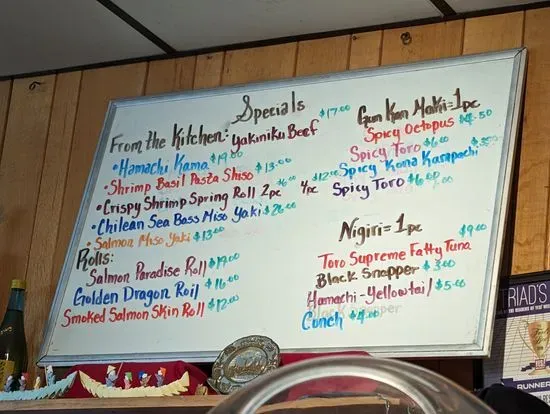 Specials
From the Kitchen: Yakiniku Beef $17.00
• Hamachi Kama $19.00
• Shrimp Basil Pasta Shiso $13.00
• Crispy Shrimp Spring Roll 2pc $6.00 4pc $12.00
• Chilean Sea Bass Miso Yaki $26.00
• Salmon Miso Yaki $13.00
Rolls:
Salmon Paradise Roll $19.00
Golden Dragon Roll $16.00
Smoked Salmon Skin Roll $12.00
Gun Kan Maki = 1pc
Spicy Octopus $4.50
Spicy Toro $6.00
Spicy Kona Kampachi
Spicy Toro $6.00
Nigiri = 1pc
Toro Supreme Fatty Tuna $9.00
Black Snapper $3.00
Hamachi-Yellowtail $5.00
Conch $4.00
RIAD'S
RUNNER